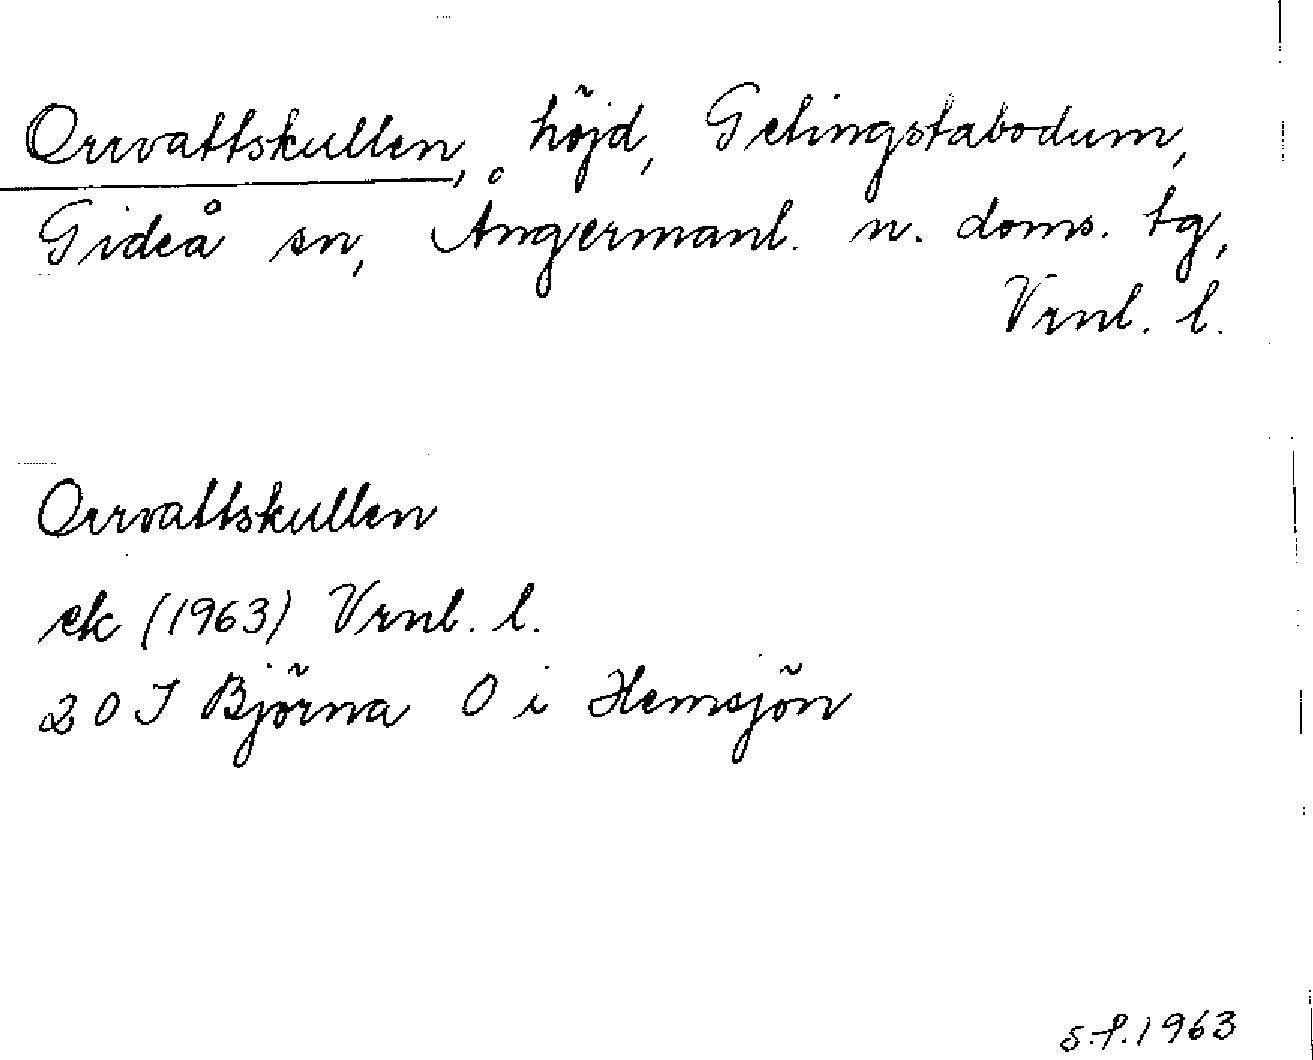 Orrvattskullen, höjd, Getingstabodum,
Gideå sn, Ångermanl. n. doms. tg,
Vrnl. l.
Orrvattskullen
ek (1963) Vrnl. l.
20 J Björna O i Hemsjön
s.f. 1963